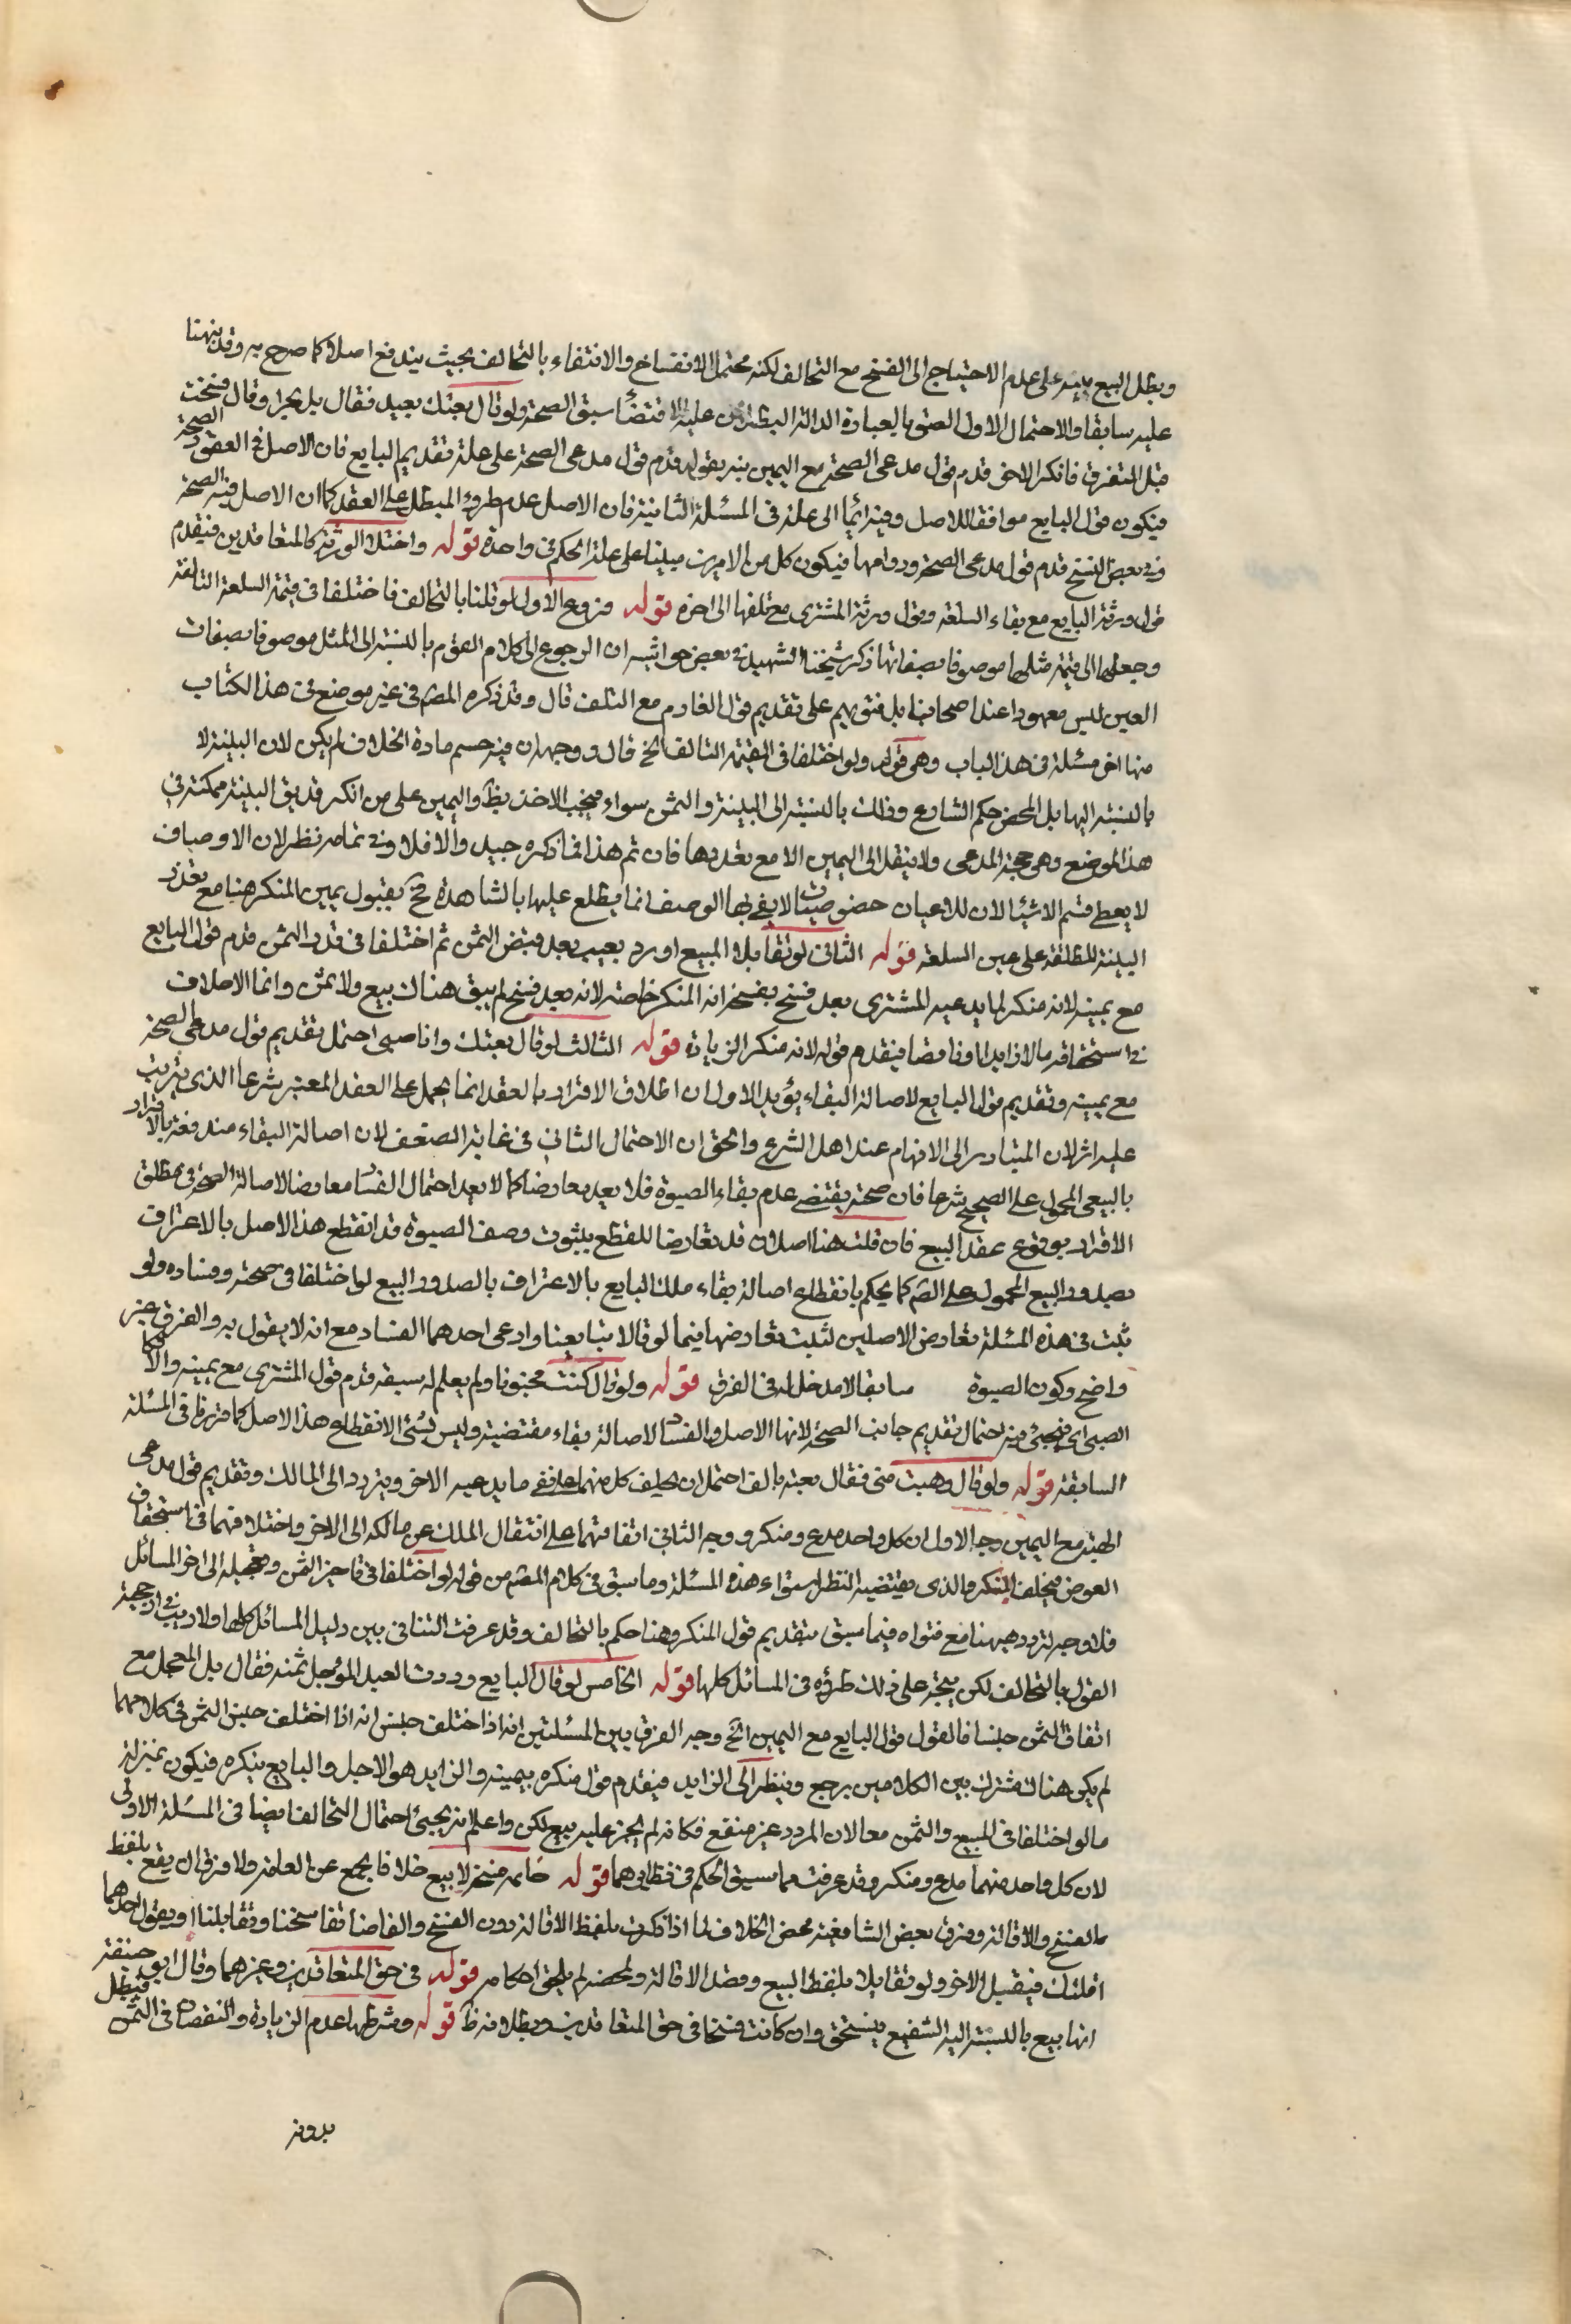 وبطل البيع يبنه على عدم الاحتياج الى الفسخ مع التحالف لكنه محتمل الانفساخ والانتفاء بالتحالف بحيث يندفع اصلا كما صرح به وقد نبهنا
عليه سابقا والاحتمال الاول الصق بالعبارة الدالة عليه الاقتضا سبق الصحة ولو قال بعتك بعبد فقال بل بحر او قال فسخت
قبل التفرق فانكر الاخر قدم قول مدعى الصحة مع اليمين نبه بقوله قدم قول مدعى الصحة على علة تقديم البايع فان الاصل فى العقود الصحة
فيكون قول البايع موافقا للاصل وفيه ايماء الى علة فى المسئلة الثانية فان الاصل عدم طروء المبطل على العقد كما ان الاصل فيه الصحة
وفى بعض النسخ قدم قول مدعى الصحة ودوامها فيكون كل من الامرين مبنيا على علة الحكم فى واحدة قوله واختلاف الورثة كالمتعاقدين فيقدم
قول ورثة البايع مع بقاء السلعة وقول ورثة المشترى مع تلفها الى اخره قوله فروع الاول لو قلنا بالتحالف فاختلفا فى قيمة السلعة التالفة
وجعلها الى قيمة مثلها موصوفا بصفاتها ذكر شيخنا الشهيد فى بعض حواشيه ان الرجوع الى كلام القوم بالنسبة الى المثل موصوفا بصفات
العين ليس معهودا عند اصحابنا بل فتويهم على تقديم قول الغارم مع التلف قال وقد ذكره المصم فى غير موضع فى هذا الكتاب
منها اخر مسئلة فى هذا الباب وهى قوله ولو اختلفا فى القيمة التالف الخ قال ووجهه ان فيه حسم مادة الخلاف لم يكن لان البينة لا
بالنسبة اليها بل المحض حكم الشارع وذلك بالنسبة الى البينة والثمن سواء فيجب الاخذ بظ واليمين على من انكر قد يق البينة ممكنة فى
هذا الموضع وهى حجة المدعى ولا ينتقل الى اليمين الا مع تعذرها فان تم هذا فما ذكره جيد والا فلا وفى تمامه نظر لان الاوصاف
لا يعطى قسم الاشياء لان للاعيان خصوصيات لا يفى بها الوصف انما يطلع عليها بالمشاهدة فح بقبول يمين المنكر هنا مع تعذر
البينة المطلقة على عين السلعة قوله الثانى لو تقابلا المبيع او رد بعيب بعد قبض الثمن ثم اختلفا فى قدر الثمن قدم قول البايع
مع يمينه لانه منكر لما يدعيه المشترى بعد فسخ بفسخ انه المنكر خاصة لانه بعد فسخ لم يبق هناك بيع ولا ثمن وانما الاختلاف
فى استحقاقه ما لا زايدا وناقصا فيقدم قوله لانه منكر الزيادة قوله الثالث لو قال بعتك وانا صبى احتمل تقديم قول مدعى الصحة
مع يمينه وتقديم قول البايع لاصالة البقاء يؤيد الاول ان اطلاق الاقرار بالعقد انما يحمل على العقد المعتبر شرعا الذى يترتب
عليه اثر لان المتبادر الى الافهام عند اهل الشرع والحق ان الاحتمال الثانى فى غاية الضعف لان اصالة البقاء مندفعة بالاقرار
بالبيع المحمول على الصحيح شرعا فان صحته يقتضى عدم بقاء الصبوة فلا يعد معارضا كما لا يعد احتمال الفساد معارضا لاصالة الصحة فى مطلق
الاقرار بوقوع عقد البيع فان قلت هنا اصلان قد تعارضا للقطع بثبوت وصف الصبوة قد انقطع هذا الاصل بالاعتراف
بصدور البيع المحمول على الصم كما يحكم بانقطاع اصالة بقاء ملك البايع بالاعتراف بالصدور البيع لو اختلفا فى صحته وفساده ولو
ثبت فى هذه المسئلة تعارض الاصلين لثبت تعارضهما فيما لو قالا تبايعنا وادعى احدهما الفساد مع انه لا يقول به والفرق غير
واضح وكون الصبوة سابقا لا مدخل له فى الفرق قوله ولو قال كنت مجنونا ولم يعلم له سبقه قدم قول المشترى مع يمينه والا فكا
الصبى اى فيجئ فيه احتمال تقديم جانب الصحة لانها الاصل والفساد لاصالة بقاء مقتضيه وليس بشئ الانقطاع هذا الاصل كما قررنا فى المسئلة
السابقة قوله ولو قال وهبت منى فقال بعته بالف احتمل ان يحلف كل منهما على نفى ما يدعيه الاخر ويتردد الى المالك وتقديم قول مدعى
الهبة مع اليمين وجه الاول ان كل واحد مدع ومنكر ووجه الثانى اتفاقهما على انتقال الملك عن مالكه الى الاخر واختلافهما فى استحقاق
العوض فيحلف المنكر والذى يقتضيه النظر استواء هذه المسئلة وما سبق فى كلام المصم من قوله لو اختلفا فى تاخير الثمن وتعجيله الى اخر المسائل
فلا وجه لتردده هيهنا مع فتواه فيما سبق بتقديم قول المنكر وهنا حكم بالتحالف وقد عرفت التنافى بين دليل المسائل كلها ولا ريب فى ارجحية
القول بالتحالف لكن يتجه على ذلك طرده فى المسائل كلها قوله الخامس لو قال البايع رددت العبد المؤجل ثمنه فقال بل المعجل مع
اتفاق الثمن جنسا فالقول قول البايع مع اليمين الخ وجه الفرق بين المسئلتين انه اذا اختلف جنس انه اذا اختلف جنس الثمن فى كلامهما
لم يكن هناك مشترك بين الكلامين يرجع وينظر الى الزايد فيقدم قول منكره بيمينه والزايد هو الاجل والبايع ينكره فيكون بمنزلة
ما لو اختلفا فى المبيع والثمن معا لان المردد غير منقع فكانه لم يجز عليه بيع لكن واعلم انه يجئ احتمال التحالف ايضا فى المسئلة الاولى
لان كل واحد منهما مدع ومنكر وقد عرفت مما سبق الحكم فى نظايرهما قوله خاتمه فسخ لا بيع خلافا لجمع من العامة ولا فرق ان يقع بلفظ
بالفسخ والاقالة وفرق بعض الشافعية محض الخلاف لما اذا ذكرت بلفظ الاقالة دون الفسخ والفاضنا تفاسخنا وتقابلنا او يقول احدهما
اقلتك فيقبل الاخر ولو تقايلا بلفظ البيع وقصد الاقالة ولمحضه لم يلحق احكامه قوله فى حق المتعاقدين وغيرهما وقال ابو حنيفة
انها بيع بالنسبة اليه الشفيع يستحق وان كانت فسخا فى حق المتعاقدين وبطلانه ظ قوله وشرطها عدم الزيادة والنقصان فى الثمن فيبطل
بدونه